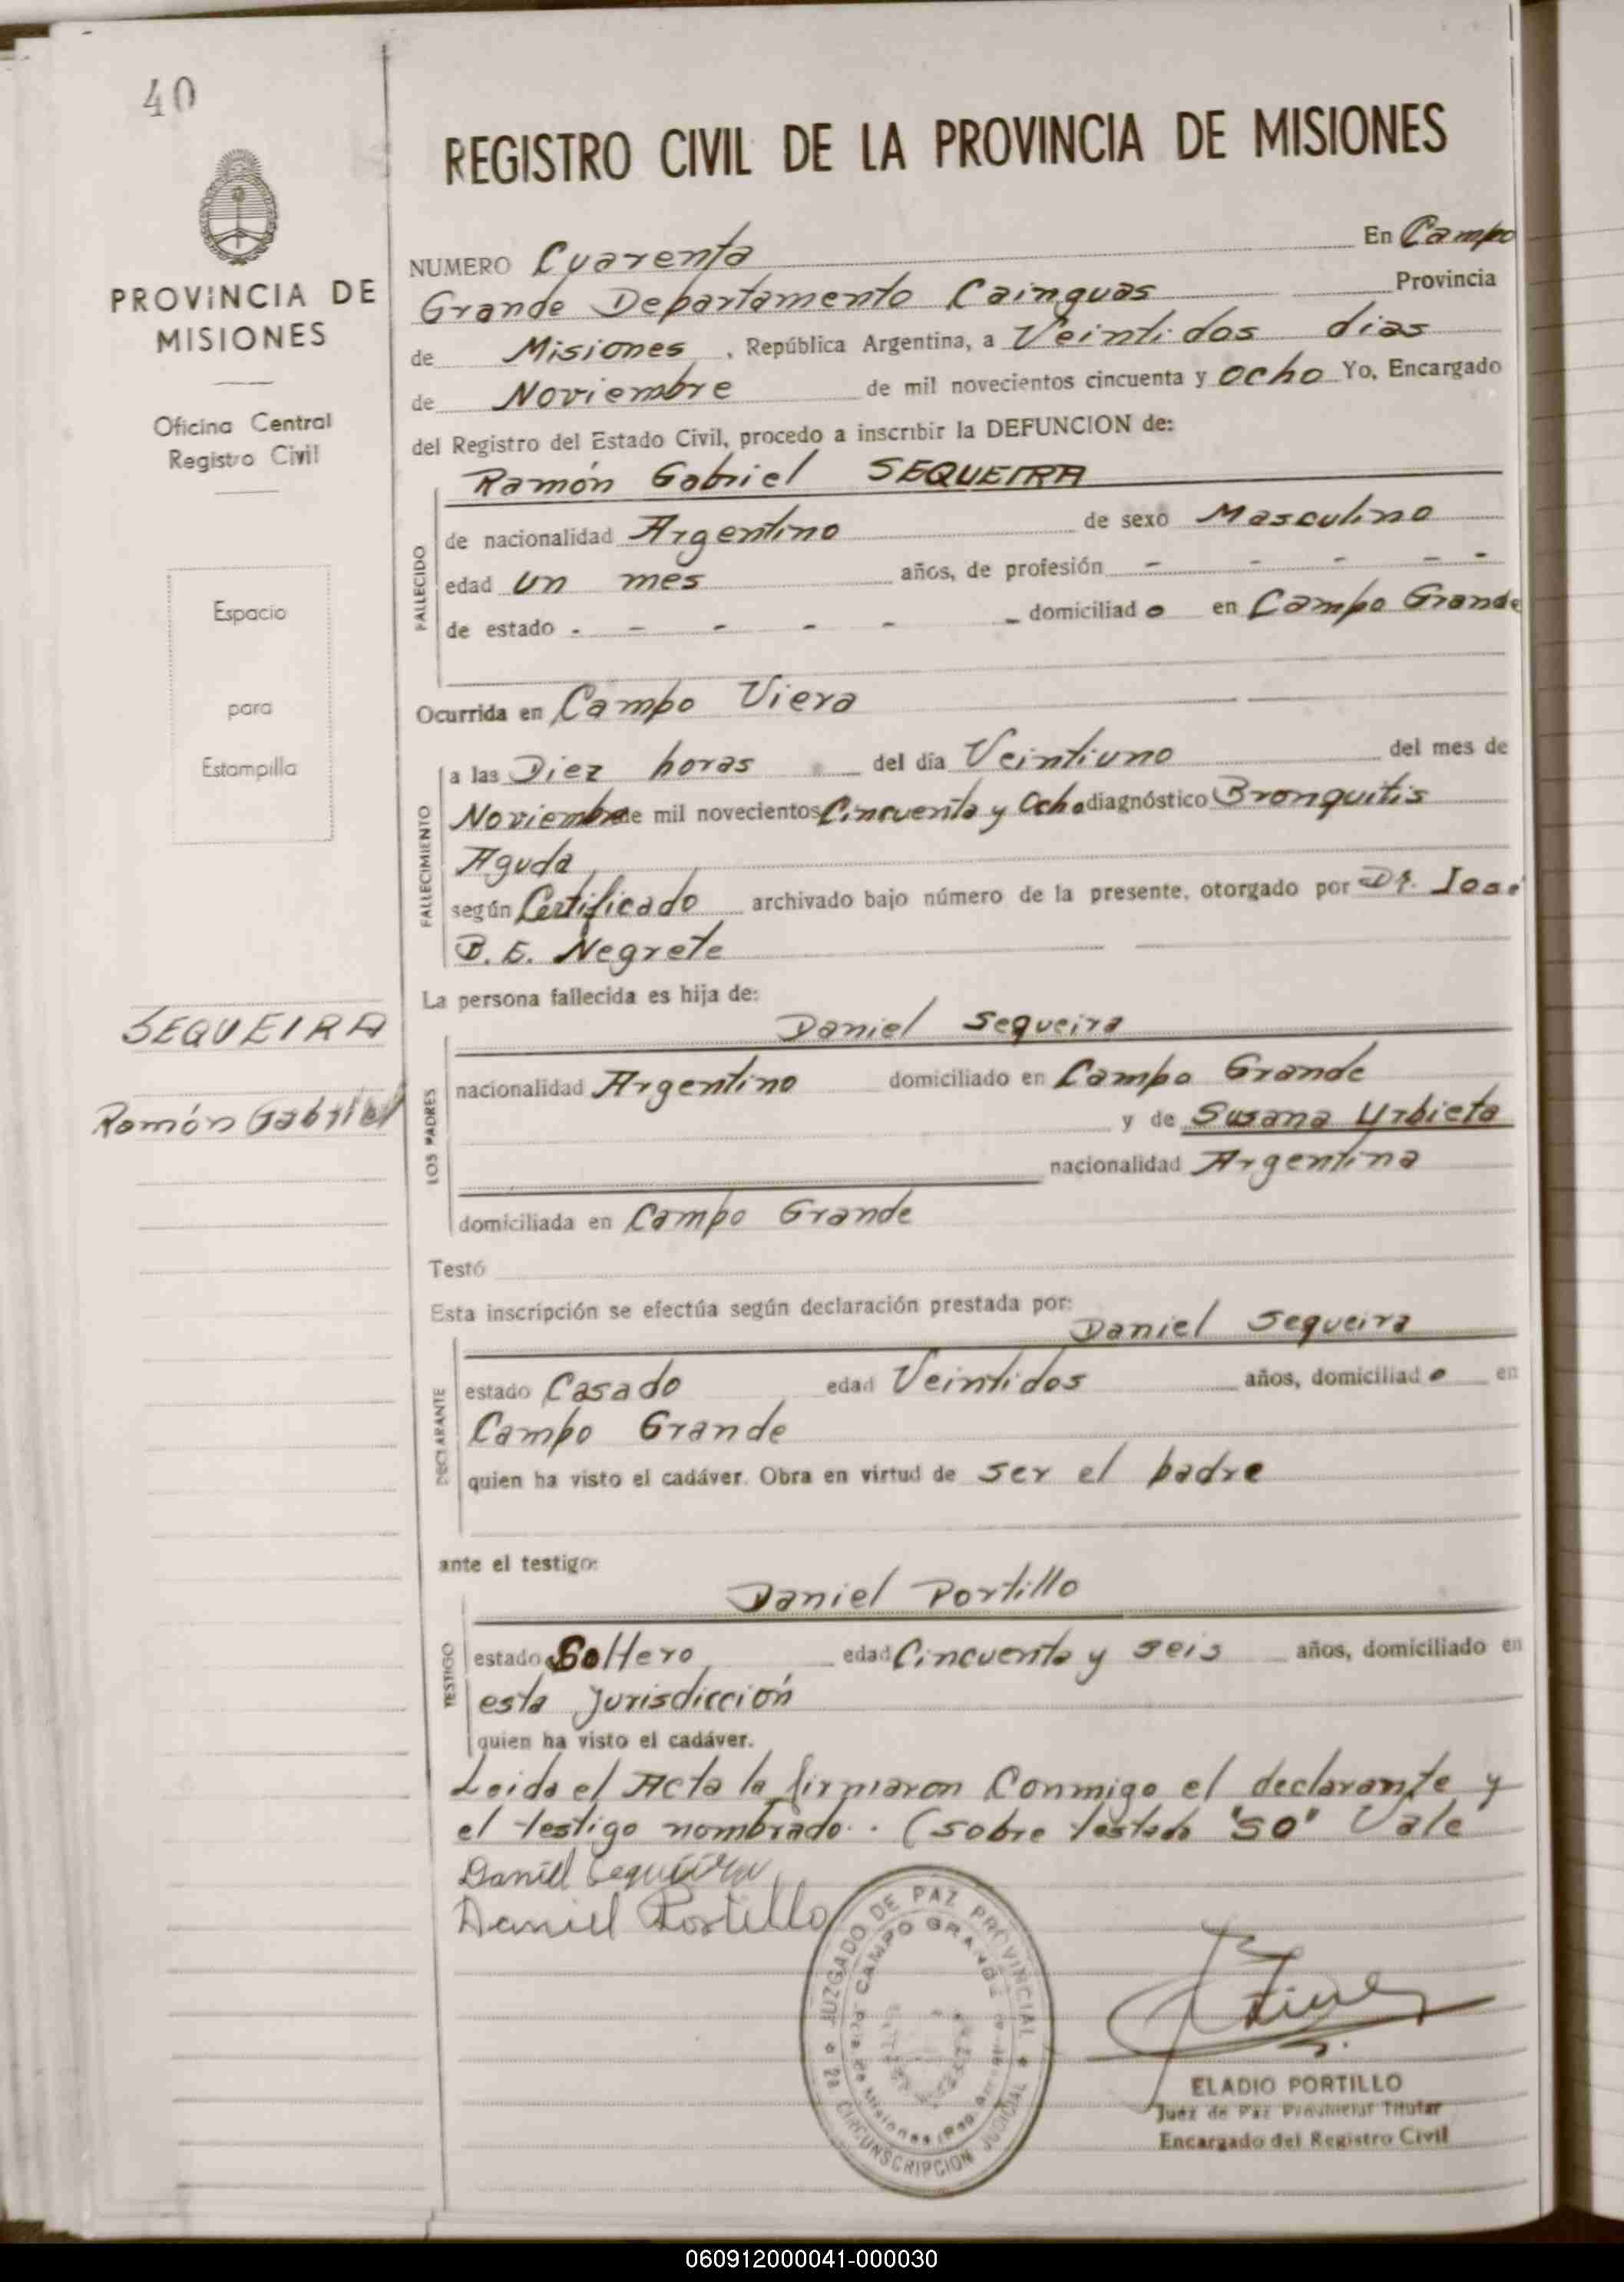 40
REGISTRO CIVIL DE LA PROVINCIA DE MISIONES
PROVINCIA DE
MISIONES
Oficina Central
Registro Civil
Espacio
para
Estampilla
SEQUEIRA
Ramón Gabriel
NUMERO Cuarenta En Campo
Grande Departamento Cainguas Provincia
de Misiones, República Argentina, a Veintidos dias
de Noviembre de mil novecientos cincuenta y ocho Yo, Encargado
del Registro del Estado Civil, procedo a inscribir la DEFUNCION de:
Ramón Gabriel SEQUEIRA
FALLECIDO
de nacionalidad Argentino de sexo Masculino
edad un mes años, de profesión - - - - -
de estado - - - - - - domiciliado en Campo Grande
Ocurrida en Campo Viera
FALLECIMIENTO
a las Diez horas del día Veintiuno del mes de
Noviembre de mil novecientos Cincuenta y Ocho diagnóstico Bronquitis
Aguda
según Certificado archivado bajo número de la presente, otorgado por Dr. Jose
B. E. Negrete
La persona fallecida es hija de:
Daniel Sequeira
LOS PADRES
nacionalidad Argentino domiciliado en Campo Grande
y de Susana Urbieta
nacionalidad Argentina
domiciliada en Campo Grande
Testó
Esta inscripción se efectúa según declaración prestada por:
Daniel Sequeira
DECLARANTE
estado Casado edad Veintidos años, domiciliado en
Campo Grande
quien ha visto el cadáver. Obra en virtud de ser el padre
ante el testigo:
Daniel Portillo
TESTIGO
estado Soltero edad Cincuenta y seis años, domiciliado en
esta Jurisdicción
quien ha visto el cadáver.
Leida el Acta la firmaron Conmigo el declarante y
el testigo nombrado. (sobre testado "SO" Vale
Daniel Sequeira
Daniel Portillo
JUZGADO DE PAZ PROVINCIAL
CAMPO GRANDE
2a CIRCUNSCRIPCION JUDICIAL
ELADIO PORTILLO
Juez de Paz Provincial Titular
Encargado del Registro Civil
060912000041-000030